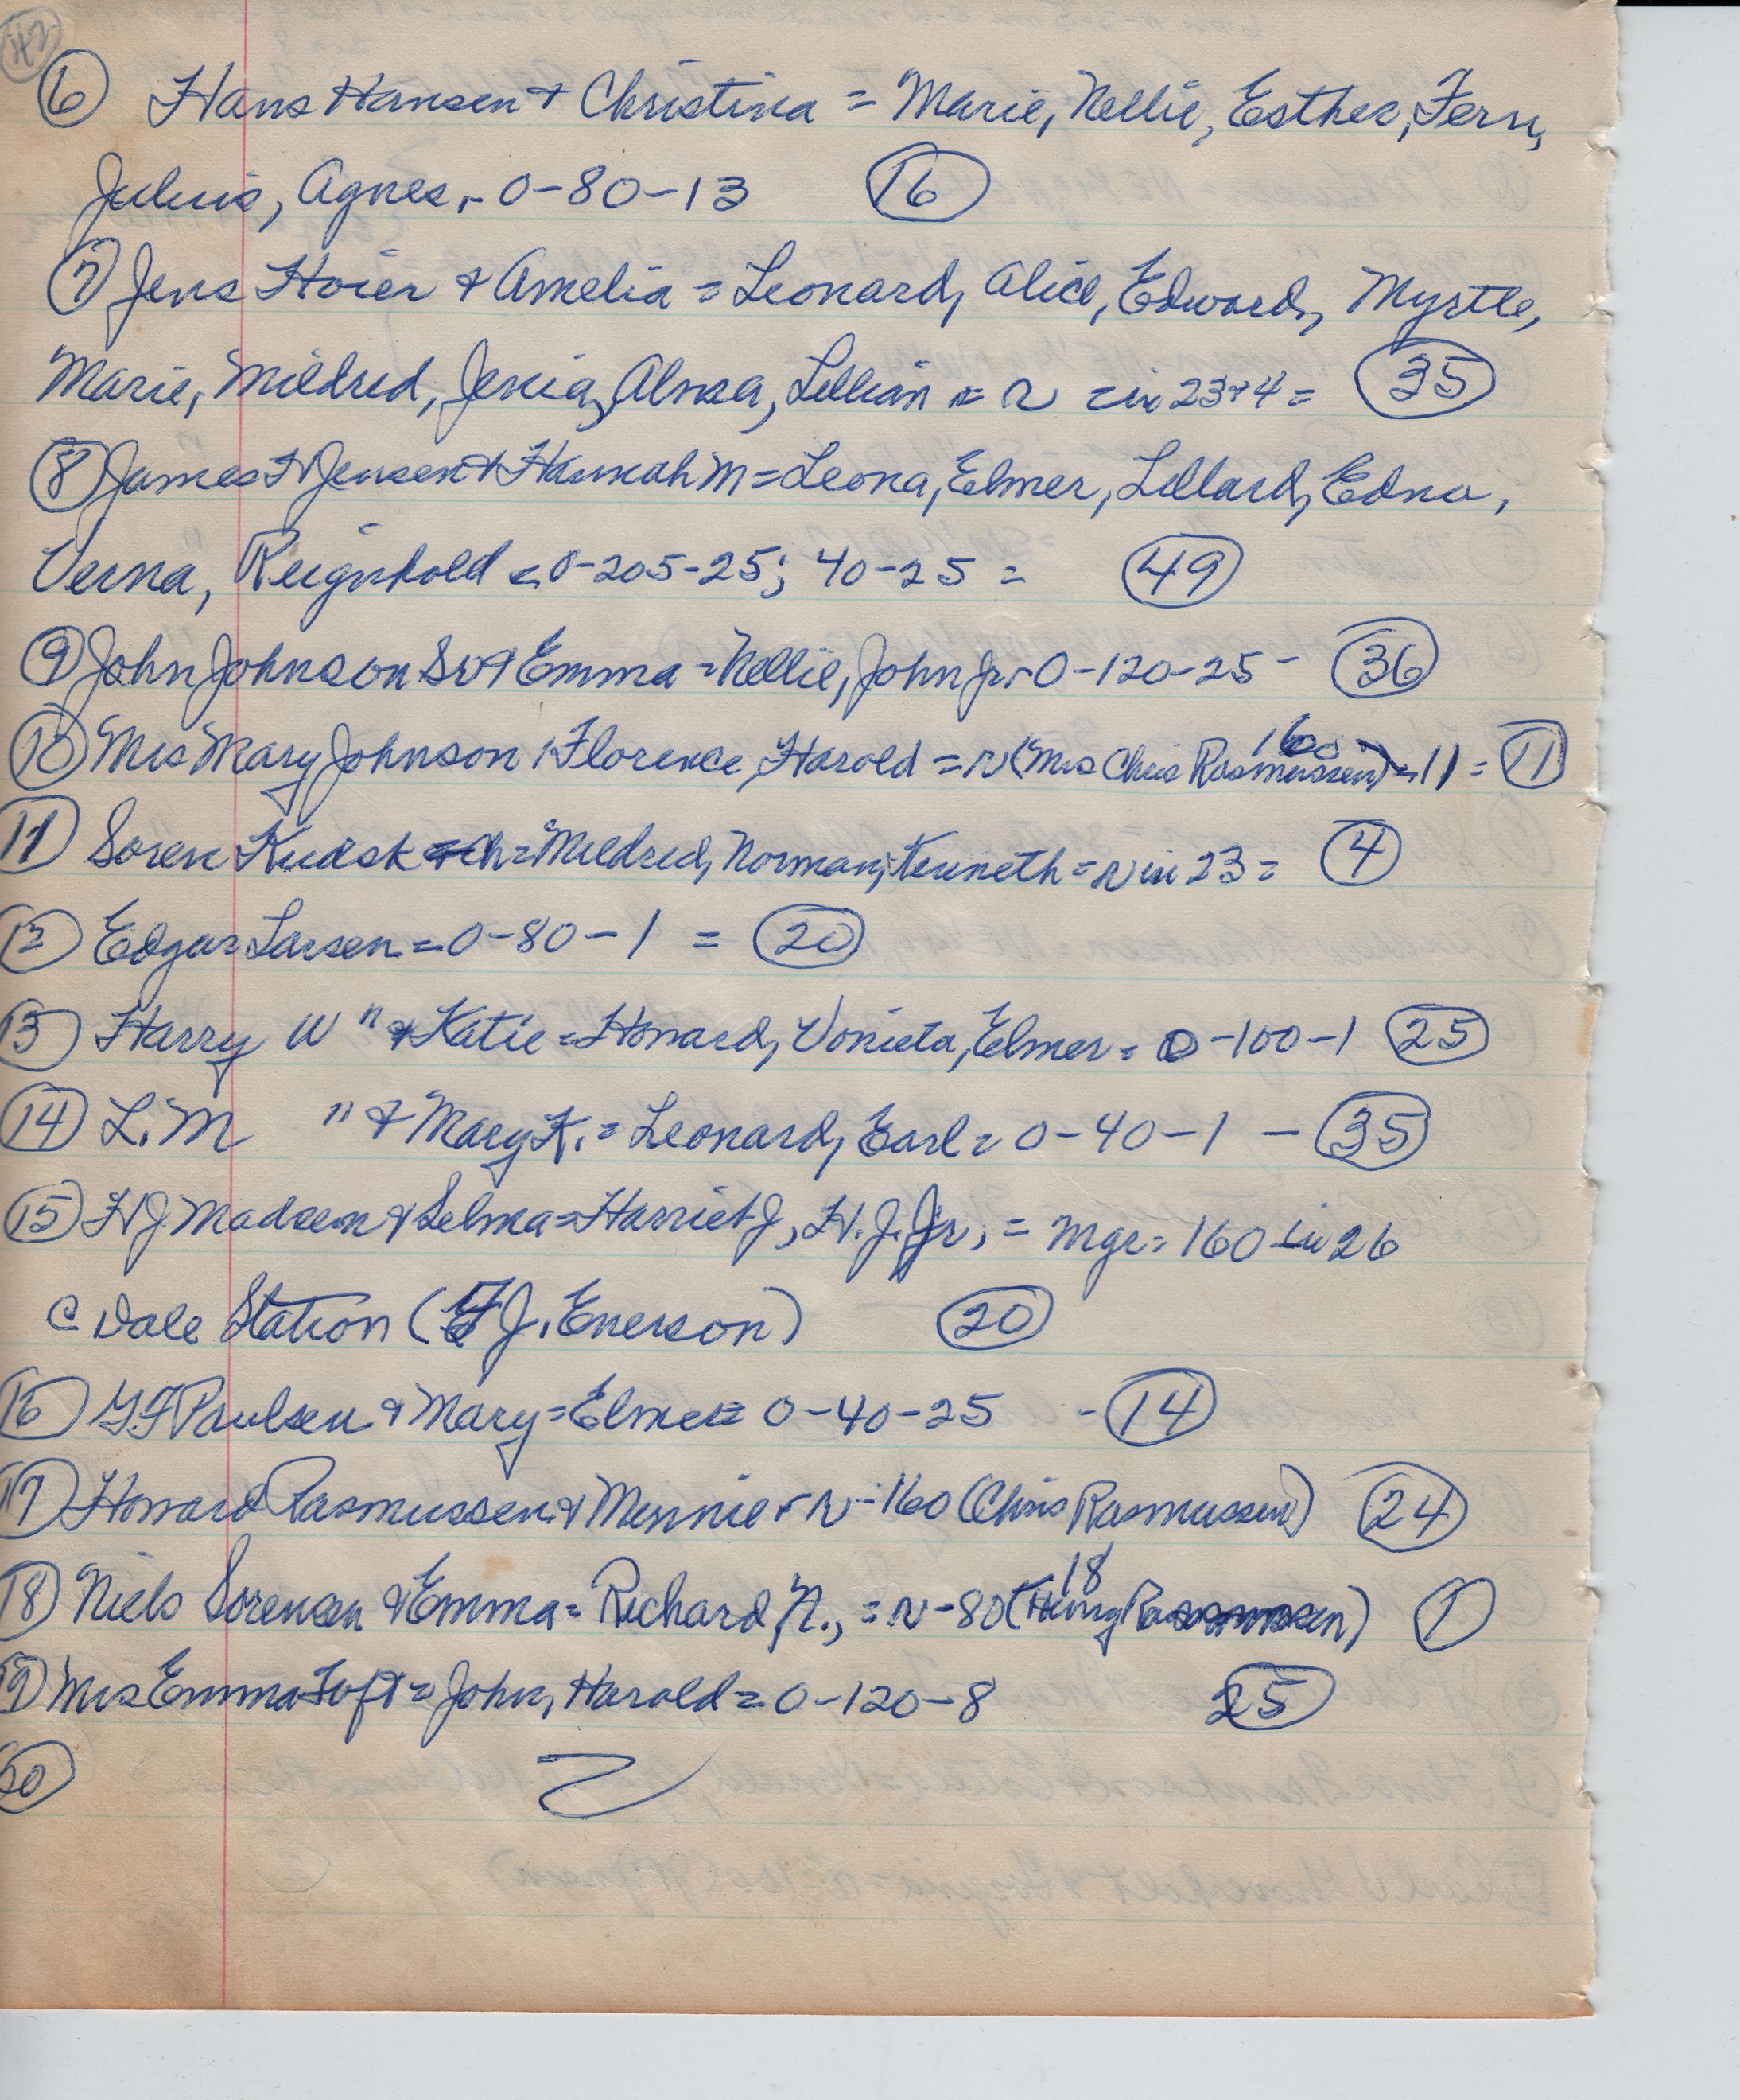 42
6 Hans Hansen & Christina = Marie, Nellie, Esther, Fern,
Julius, Agnes, - 0-80-13 16
7 Jens Hoier & Amelia = Leonard, Alice, Edward, Myrtle,
Marie, Mildred, Alma, Lillian = r = in 23+4 = 35
8 James H Jensen & Hannah M = Leona, Elmer, Lillard, Edna,
Verna, Reignhold = 0-205-25; 40-25 = 49
9 John Johnson Sr & Emma = Nellie, John Jr - 0-120-25 - 36
10 Mrs Mary Johnson, Florence, Harold = r (Mrs Chris Rasmussen) 160 - 11 = 11
11 Soren Kudsk = Mildred, Norman, Kenneth = r in 23 = 4
12 Edgar Larsen = 0-80-1 = 20
13 Harry W " & Katie = Howard, Vonieta, Elmer = 0-100-1 25
14 L. M " & Mary K. = Leonard, Earl = 0-40-1 - 35
15 H J Madsen & Selma = Harriet J, H. J. Jr, = Mgr = 160 in 26
@ Dale Station (J. Enerson) 20
16 Paulsen & Mary = Elmer = 0-40-25 - 14
17 Howard Rasmussen & Minnie - r - 160 (Chris Rasmussen) 24
18 Niels Sorensen & Emma = Richard, N., = r - 80 (Henry Rasmussen) 18 1
19 Mrs Emma Toft = John, Harold = 0-120-8 25
20